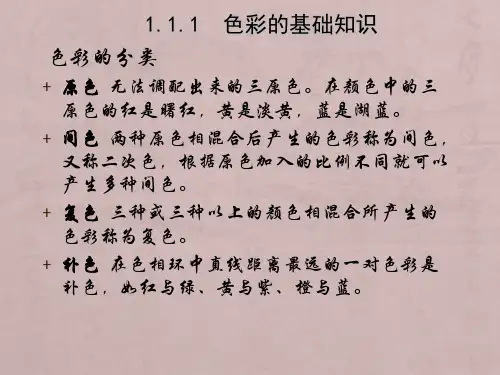 1.1.1 色彩的基础知识
色彩的分类
+ 原色 无法调配出来的三原色。在颜色中的三
原色的红是曙红,黄是淡黄,蓝是湖蓝。
+ 间色 两种原色相混合后产生的色彩称为间色,
又称二次色,根据原色加入的比例不同就可以
产生多种间色。
+ 复色 三种或三种以上的颜色相混合所产生的
色彩称为复色。
+ 补色 在色相环中直线距离最远的一对色彩是
补色,如红与绿、黄与紫、橙与蓝。